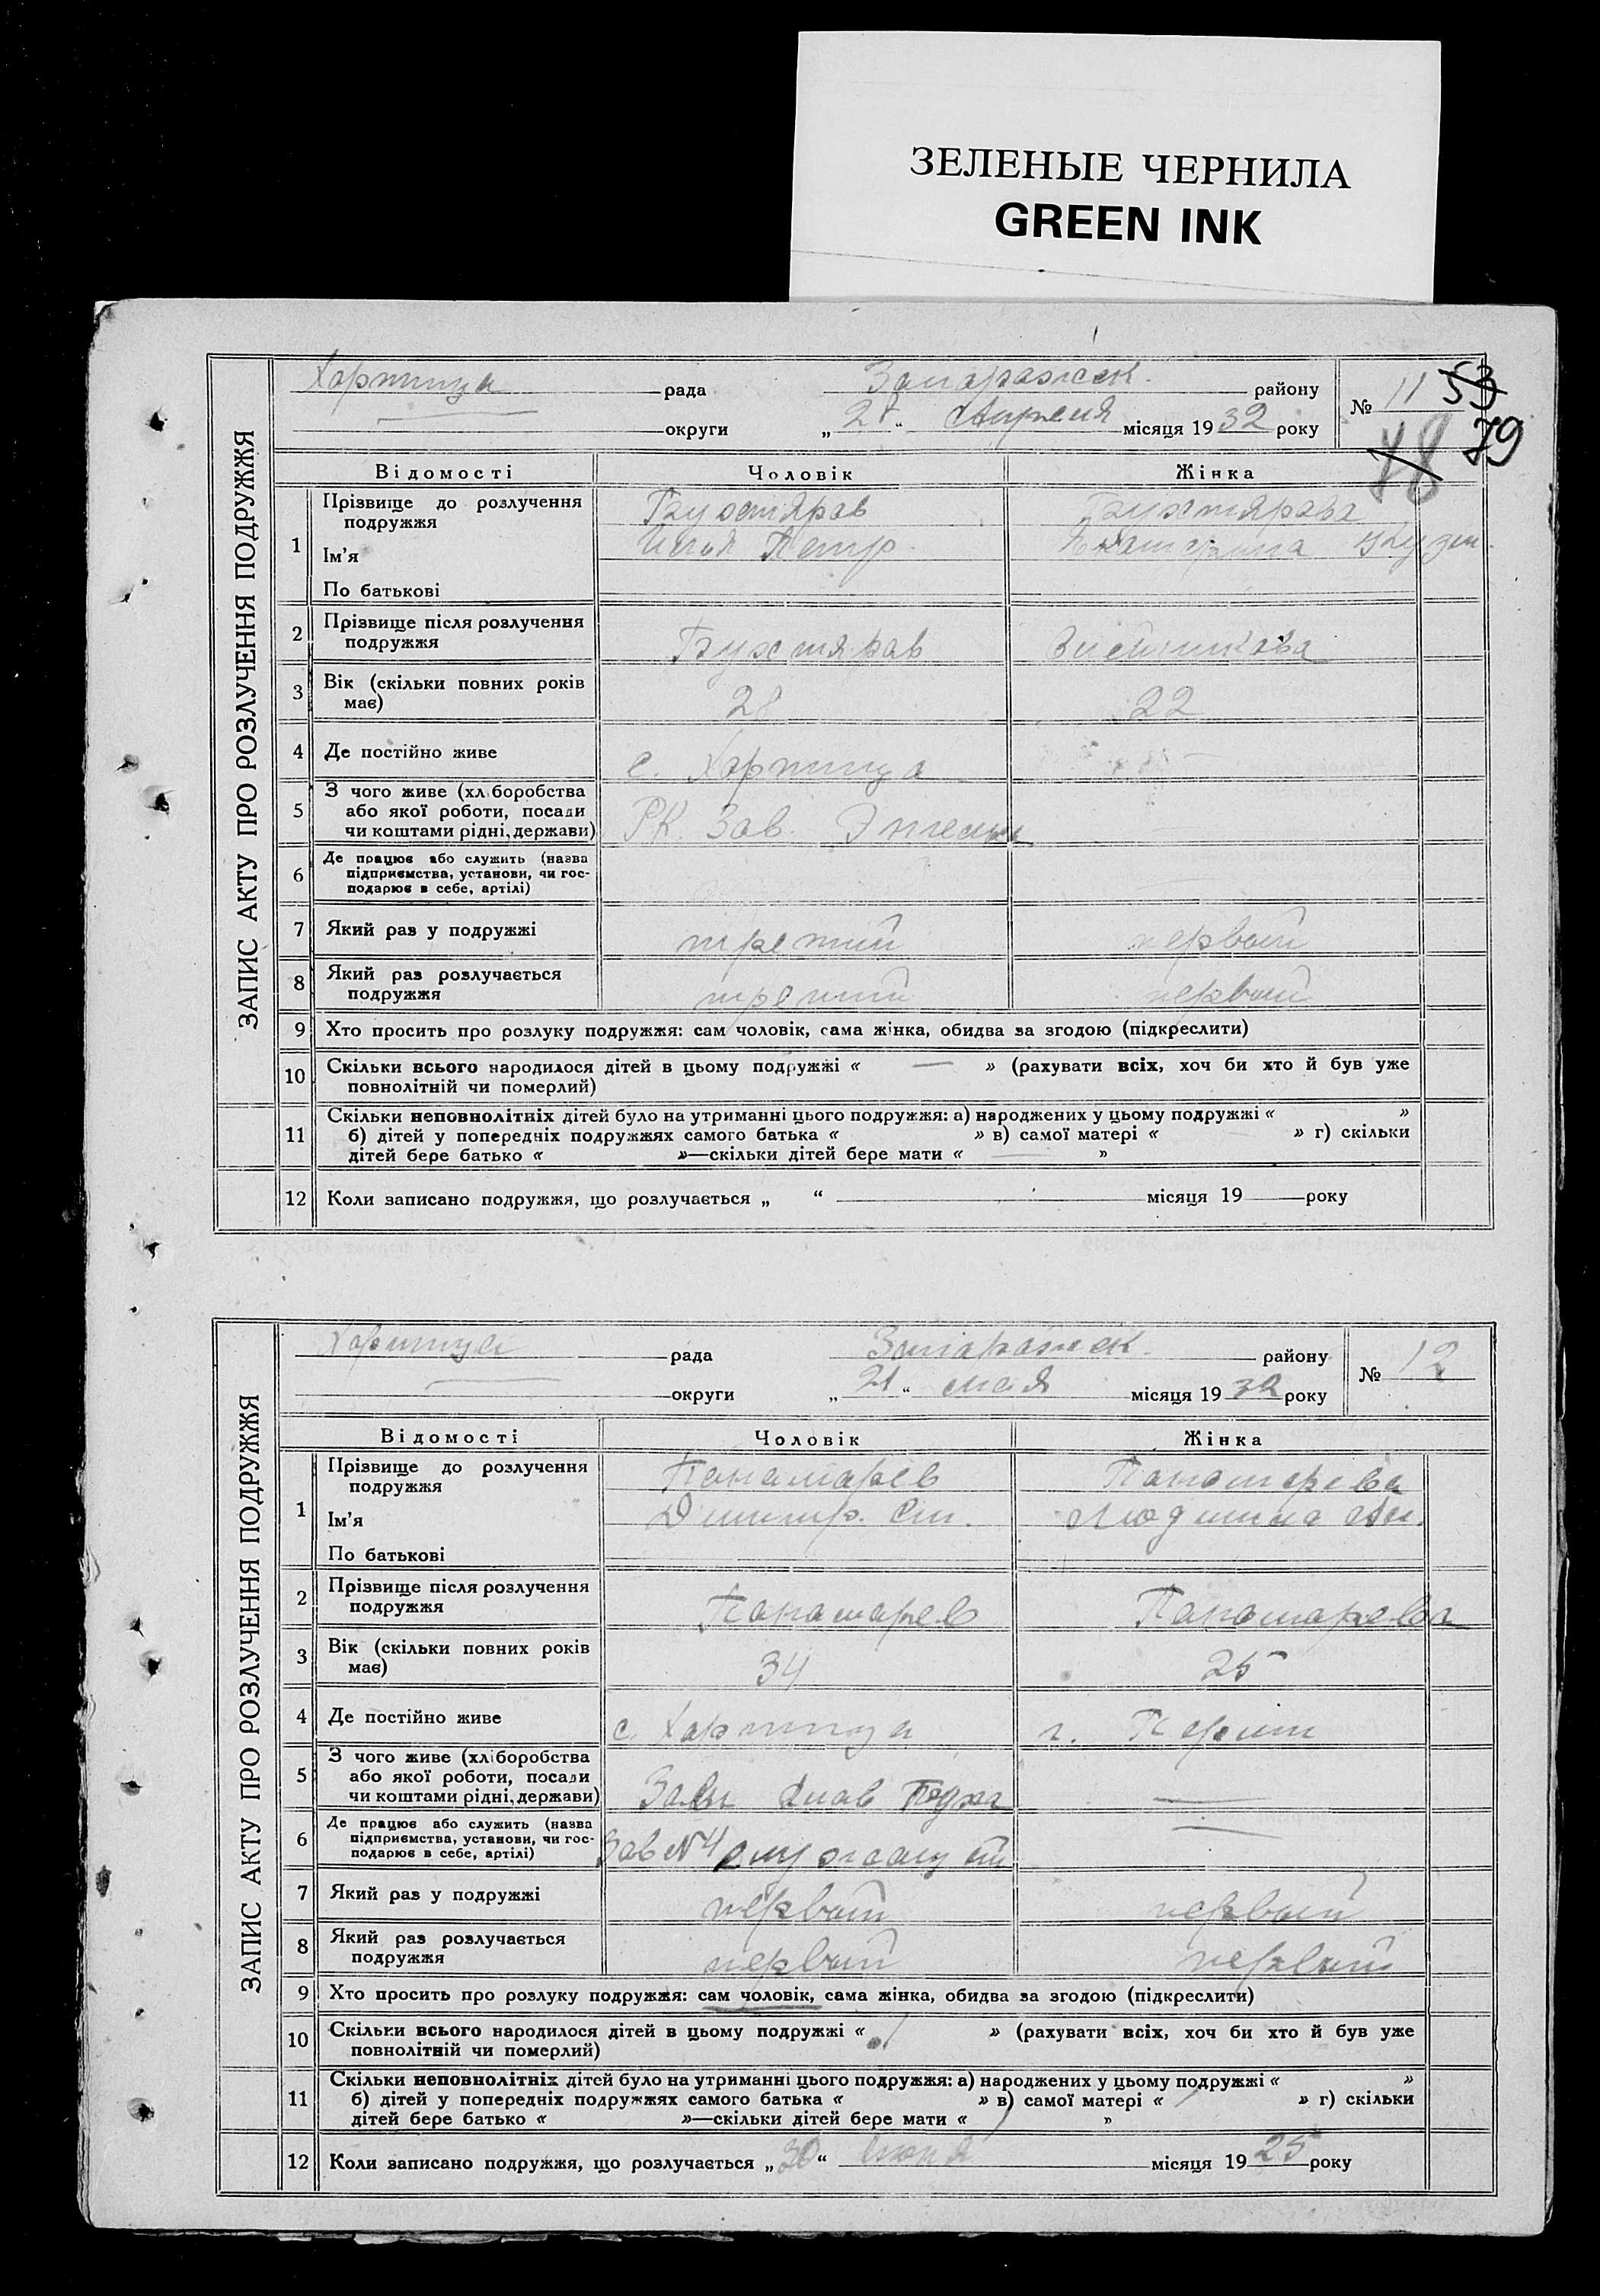 ЗЕЛЕНЫЕ ЧЕРНИЛА
GREEN INK
ЗАПИС АКТУ ПРО РОЗЛУЧЕННЯ ПОДРУЖЖЯ
Хортица рада Запаражск. району
№ 11 53
округи „ “ Апреля місяця 1932 року
78 79
Відомості Чоловік Жінка
1 Прізвище до розлучення подружжя Бухтяров Бухтярова
Ім’я Илья Петр.
По батькові
2 Прізвище після розлучення подружжя Бухтяров
3 Вік (скільки повних років має) 28 22
4 Де постійно живе с. Хортица
5 З чого живе (хліборобства або якої роботи, посади чи коштами рідні, держави) РК. Зав. Энгельса
6 Де працює або служить (назва підприємства, установи, чи господарює в себе, артілі)
7 Який раз у подружжі третий первый
8 Який раз розлучається подружжя третий первый
9 Хто просить про розлуку подружжя: сам чоловік, сама жінка, обидва за згодою (підкреслити)
10 Скільки всього народилося дітей в цьому подружжі « — » (рахувати всіх, хоч би хто й був уже
повнолітній чи померлий)
11 Скільки неповнолітніх дітей було на утриманні цього подружжя: а) народжених у цьому подружжі « »
б) дітей у попередніх подружжях самого батька « » в) самої матері « » г) скільки
дітей бере батько « »—скільки дітей бере мати « — »
12 Коли записано подружжя, що розлучається „ “ місяця 19 року
ЗАПИС АКТУ ПРО РОЗЛУЧЕННЯ ПОДРУЖЖЯ
Хортица рада Запаражск. району
№ 12
округи „ 21 “ мая місяця 1932 року
Відомості Чоловік Жінка
1 Прізвище до розлучення подружжя Панамарев Панамарева
Ім’я Димитр. Ст. Людмила
По батькові
2 Прізвище після розлучення подружжя Панамарев Панамарева
3 Вік (скільки повних років має) 34 25
4 Де постійно живе с. Хортица г.
5 З чого живе (хліборобства або якої роботи, посади чи коштами рідні, держави) —
6 Де працює або служить (назва підприємства, установи, чи господарює в себе, артілі) Зав №4 —
7 Який раз у подружжі первый первый
8 Який раз розлучається подружжя первый первый
9 Хто просить про розлуку подружжя: сам чоловік, сама жінка, обидва за згодою (підкреслити)
10 Скільки всього народилося дітей в цьому подружжі « 1 » (рахувати всіх, хоч би хто й був уже
повнолітній чи померлий)
11 Скільки неповнолітніх дітей було на утриманні цього подружжя: а) народжених у цьому подружжі « »
б) дітей у попередніх подружжях самого батька « » в) самої матері « » г) скільки
дітей бере батько « »—скільки дітей бере мати « 1 »
12 Коли записано подружжя, що розлучається „ 30 “ июня місяця 1925 року